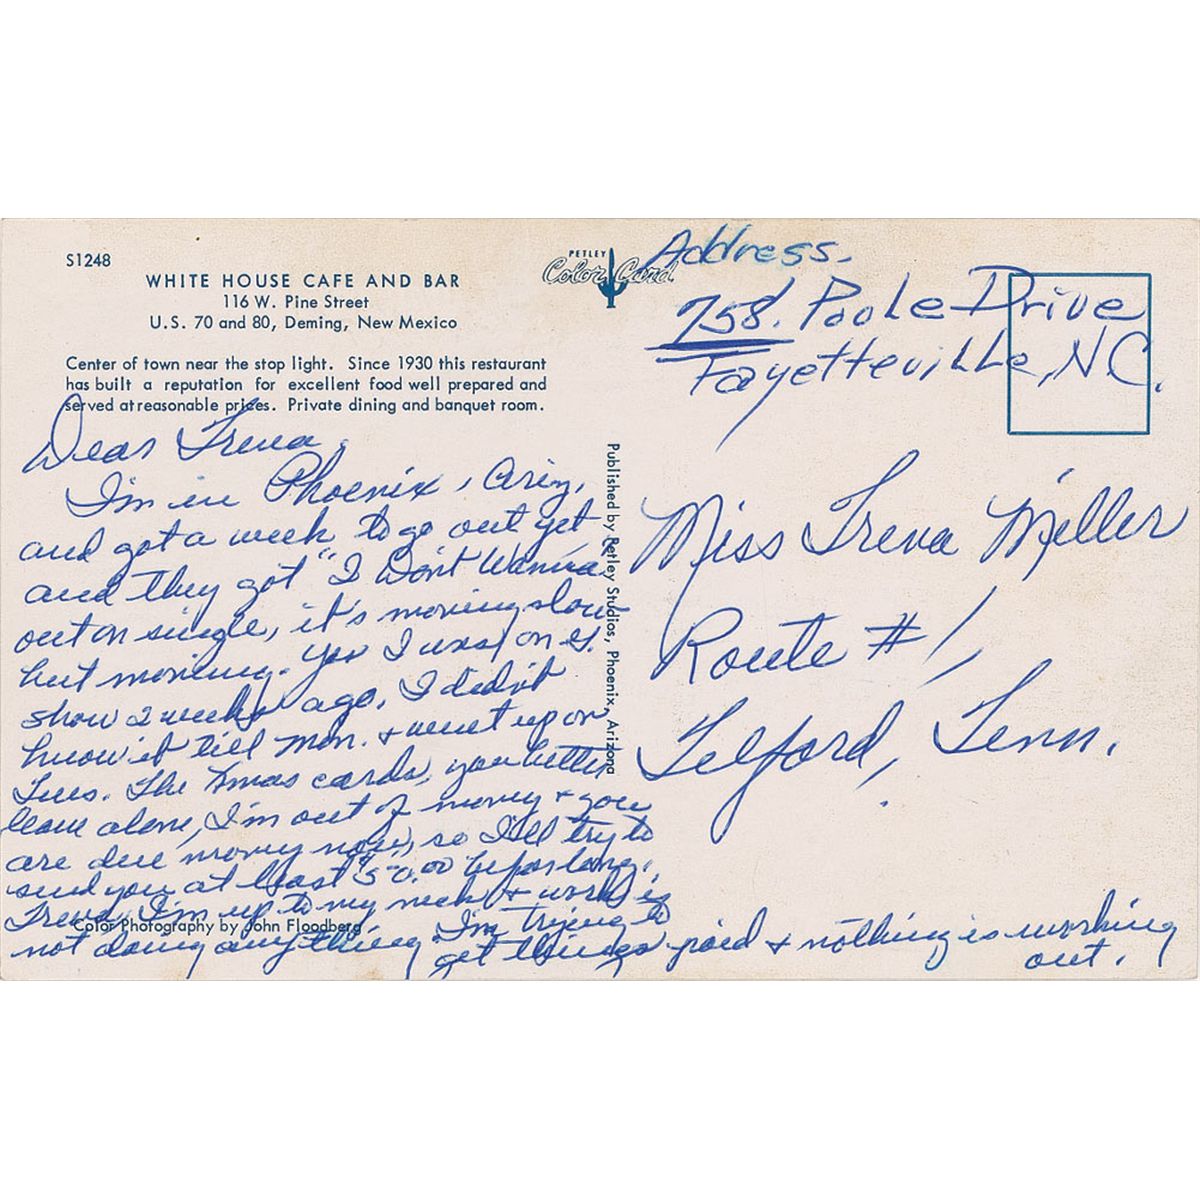 S1248
WHITE HOUSE CAFE AND BAR
116 W. Pine Street
U.S. 70 and 80, Deming, New Mexico
Center of town near the stop light. Since 1930 this restaurant
has built a reputation for excellent food well prepared and
served at reasonable prices. Private dining and banquet room.
Dear Treva,
I'm in Phoenix, Ariz,
and got a week to go out yet
and they got "I Don't Wanna
out on single, it's moving slow
but moving. Yes I was on
show 2 weeks ago, I didn't
know it till Mon. & went up on
Tues. The Xmas cards, you better
leave alone, I'm out of money & you
are due money now, so I'll try to
send you at least $50.00 before long.
Treva, I'm up to my neck & work is
not doing anything. I'm trying to
get things paid & nothing is working
out.
Color Photography by John Floodberg
PETLEY
Color Card
Published by Petley Studios, Phoenix, Arizona
Address.
758. Poole Drive
Fayetteville, N.C.
Miss Treva Miller
Route #1,
Telford, Tenn.